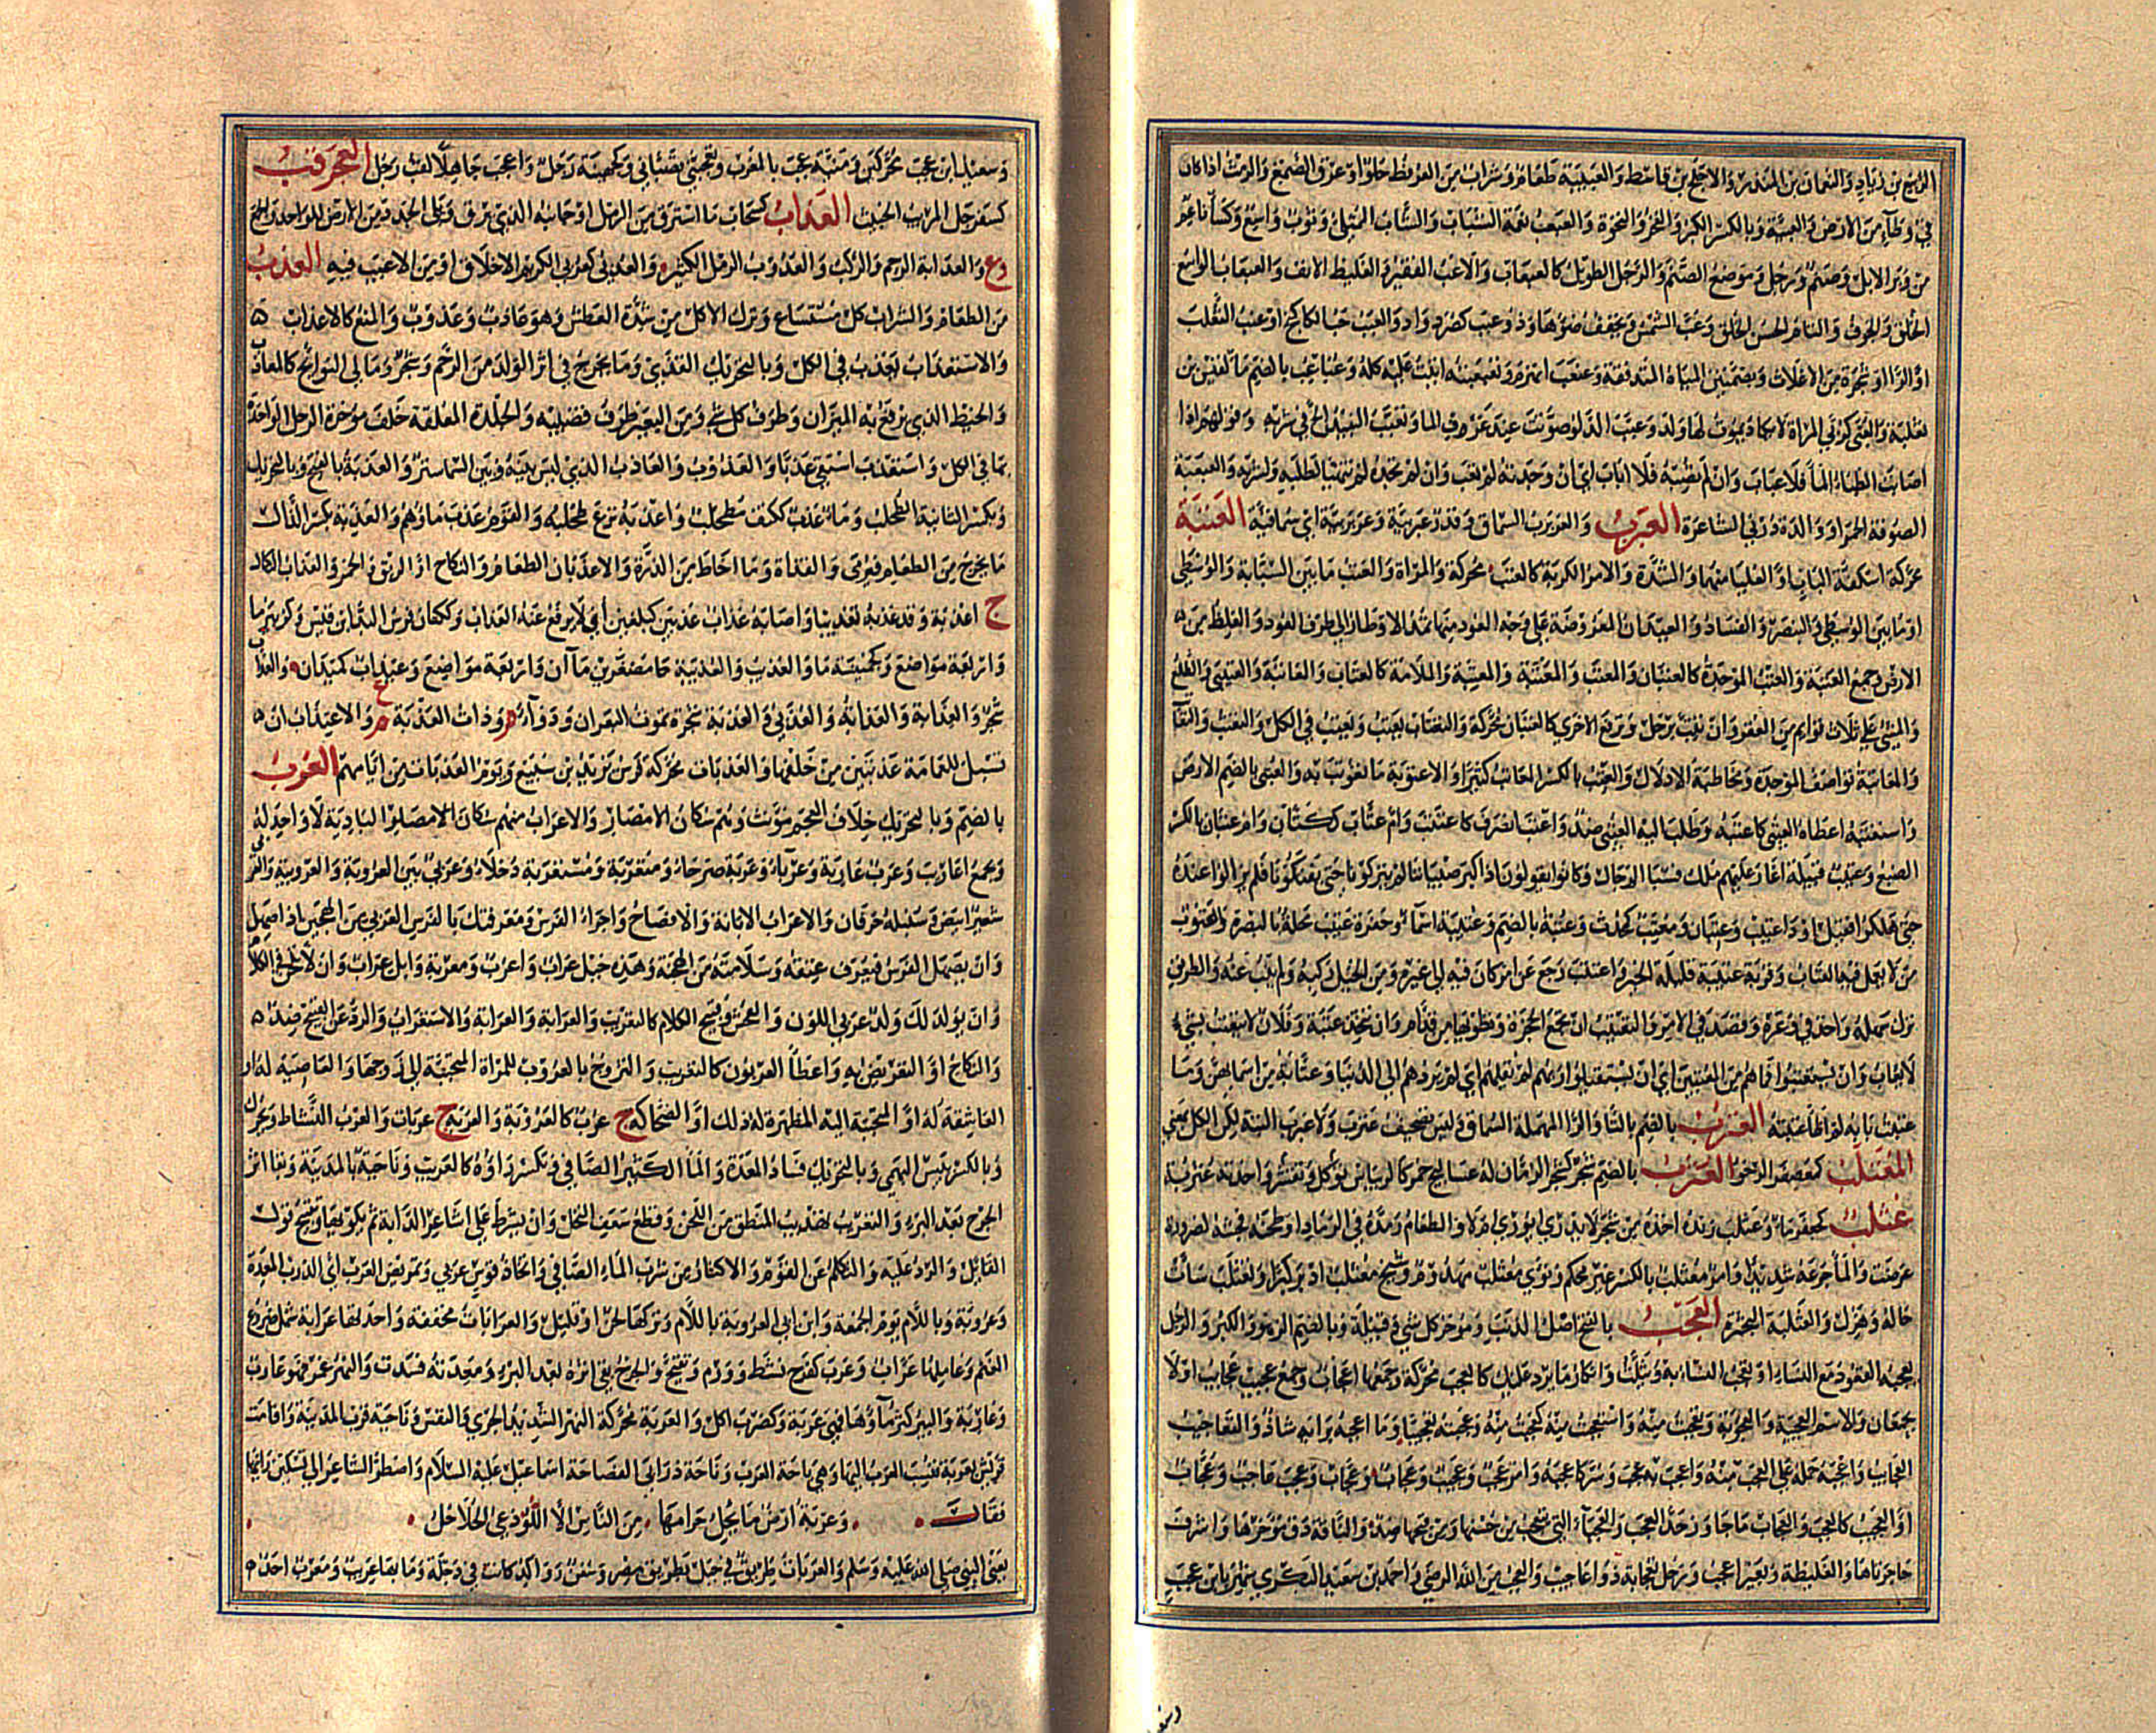 الربيع بن زياد والنعمان بن المنذر والاجلح بن قاسط والعبيبة طعام وشراب من العرفط حلو او عرق الصمغ والرمث اذا كان
في وطاء من الارض والعبية وبالكسر الكبر والفخر والنخوة والعبعب نعمة الشباب والشاب الممتلئ وثوب واسع وكساء ناعم
من وبر الابل وصنم ورجل وموضع الصنم والرجل الطويل كالعبعاب والاعب الفقير والغليظ الانف والعبعاب الواسع
الحلق والجوف والتام الحسن الخلق وعب الشمس ويخفف ضوءها وذو عبب كصرد واد والعبب حب الكاكنج او عنب الثعلب
او الراء او شجرة من الاغلاث وبضمتين المياه المتدفقة وعبعب انهزم وتعبعبته اتيت عليه كله وعباعب بالضم ماء لقيس بن
ثعلبة والعبى كربى المراة لا يكاد يموت لها ولد وعبت الدلو صوتت عند غرف الما وتعبب النبيذ الح في شربه وقولهم اذا
اصابت الظباء الماء فلا عباب وان لم تصبه فلا اباب اي ان وجدته لم تعب وان لم تجده لم تتهيا لطلبه ولشربه والعبعبة
الصوفة الحمرا ووالدة درنى الشاعرة العبرب والعربرب السماق وقدر عبربية وعربربية اي سماقية العتبة
محركة اسكفة الباب او العليا منهما والشدة والامر الكريه كالعتب محركة والمراة والعتب ما بين السبابة والوسطى
او ما بين الوسطى والبنصر والفساد والعيدان المعروضة على وجه العود منها تمد الاوتار الى طرف العود والغلظ من
الارض وجمع العتبة والعتب الموجدة كالعتبان والمعتب والمعتبة والمعتبة والملامة كالعتاب والمعاتبة والعتيبى والظلع
والمشي على ثلاث قوائم من العقر وان تثب برجل وترفع الاخرى كالعتبان محركة والتعتاب يعتب ويعتب في الكل والتعتب والتعاتب
والمعاتبة تواصف الموجدة ومخاطبة الادلال والعتب بالكسر المعاتب كثيرا والاعتوبة ما تعوتب به والعتبى بالضم الارض
واستعتبه اعطاه العتبى كاعتبه وطلب اليه العتبى ضد واعتتب انصرف كاعتتب وام عتاب ككتاب وام عتبان بالكسر
الضبع وعتيب قبيلة اغار عليهم ملك فسبا الرجال وكانوا يقولون اذا كبر صبياننا لم يتركونا حتى يفتكونا فلم يزالوا عنده
حتى هلكوا فقيل اودى عتيب وعتبان ومعتب كمحدث وعتبة بالضم وعتيبة اسماء وحفرة عتيب محلة بالبصرة والعتوب
من لا يعمل فيه العتاب وقرية عتيبة قليلة الخير واعتتب رجع عن امر كان فيه الى غيره ومن الجبل ركبه ولم ينب عنه والطريق
ترك سهله واخذ في وعره وقصد في الامر والتعتيب ان تجمع الحجزة وتطويها من قدام وان تتخذ عتبة وفلان لا يتعتب بشيء
لا يعاب وان يستعتبوا فما هم من المعتبين اي ان يستقيلوا ربهم لم يقلهم اي لم يردهم الى الدنيا وعتابة من اسمائهن وما
عتبت بابه لم اطأ عتبته العترب بالضم بالتا والرا المهملة السماق وليس بتصحيف عنزب ولا عبرب البتة لكن الكل بمعنى
المعتلب كمعصفر الرخو العثرب بالضم شجر كشجر الرمان له عساليج حمر كالريباس تؤكل وتقشر واحدته عثربة
عثلب كجعفر ماء وعثلب زنده اخذه من شجر لا يدري ايوري ام لا والطعام رمده في الرماد او طحنه فجشه لضرورة
عرضت والماء جرعه شديدا وامر معثلب بالكسر غير محكم ونوي معثلب مهدوم وشيخ معثلب ادبر كبرا وتعثلب سات
حاله وهزل والعثلبة البحثرة العجب بالفتح اصل الذنب ومؤخر كل شيء وقبيلة وبالضم الزهو والكبر والرجل
يعجبه القعود مع النساء او تعجب النساء به ويثلث وانكار ما يرد عليك كالعجب محركة وجمعها اعجاب وجمع عجيب عجايب او لا
يجمعان والاسم العجيبة والاعجوبة وتعجبت منه واستعجبت منه كعجبت منه وعجبته تعجيبا وما اعجبه برايه شاذ والتعاجيب
العجايب واعجبه حمله على العجب منه واعجب به عجب وسر كاعجبه وامر عجب وعجيب وعجاب وعجاب وعجب عاجب وعجاب
او العجيب كالعجب والعجاب ما جاوز حد العجب والعجباء التي يتعجب من حسنها ومن قبحها ضد والناقة دق مؤخرها واشرف
جاعرتاها والغليظة وبعير اعجب ورجل تعجابة ذو اعاجيب والعجب من الله الرضى واحمد بن سعيد البكري شهر بابن عجب
وسعيد ابن عجب محركتين ومنية عجب بالمغرب وتعجبني تصباني وكجهينة رجل واعجب جاهلا لقب رجل العجرقب
كسفرجل المريب الخبيث العداب كسحاب ما استرق من الرمل او جانبه الذي يرق ويلي الجدد من الارض للواحد والجمع
وع والعدابة الرحم والركب والعدوب الرمل الكثير والعدبي كعربي الكريم الاخلاق او من لا عيب فيه العذب
من الطعام والشراب كل مستساغ وترك الاكل من شدة العطش وهو عاذب وعذوب والمنع كالاعذاب
والاستعذاب يعذب في الكل وبالتحريك القذى وما يخرج في اثر الولد من الرحم وشجر ومآلي النوائح كالمعاذب
والخيط الذي يرفع به الميزان وطرف كل شيء ومن البعير طرف قضيبه والجلدة المعلقة خلف مؤخرة الرحل الواحدة
بها في الكل واستعذب استقى عذبا والعذوب والعاذب الذي ليس بينه وبين السما ستر والعذبة بالفتح وبالتحريك
وبكسر الثانية الطحلب وماء عذب ككتف مطحلب واعذبه نزع طحلبه والقوم عذب ماؤهم والعذبة بكسر الذال
ما يخرج من الطعام فيرمى والقذاة وما احاط من الدرة والاعذبان الطعام والنكاح او الريق والخمر والعذاب النكال
ج اعذبة وقد عذبه تعذيبا واصابه عذاب عذبين كبلغين اي لا يرفع عنه العذاب وككتان فرس البداء بن قيس وكزبير ماء
واربعة مواضع وكجهينة ماء والعذيب والعذيبة مصغرين ماآن واربعة مواضع وعيذاب كميدان والعذاب
شجر والعذابة والعذابة والعذبى والعذبة شجرة تموت البعران ودواء م وذات العذبة ع والاعتذاب ان
تسبل للعمامة عذبتين من خلفها والعذبات محركة فرس يزيد بن سبيع ويوم العذبات من ايامهم العرب
بالضم وبالتحريك خلاف العجم مؤنث وهم سكان الامصار والاعراب منهم سكان الامصار او البادية لا واحد له
ويجمع اعاريب وعرب عاربة وعرباء وعربة صرحاء ومتعربة ومستعربة دخلاء وعربي بين العروبة والعروبية والعربي
شعير ابيض وسنبله حرفان والاعراب الابانة والافصاح واجراء الفرس ومعرفتك بالفرس العربي من الهجين اذا صهل
وان يصهل الفرس فيعرف عتقه وسلامته من الهجنة وهذه خيل عراب واعرب ومعربة وابل عراب وان لا تلحن في الكلام
وان يولد لك ولد عربي اللون والفحش وقبيح الكلام كالتعريب والعرابة والعرابة والاستعراب والرد عن القبيح ضد
والنكاح او التعريض به واعطاء العربون كالتعريب والتزوج بالعروب للمراة المتحببة الى زوجها والعاصية له او
العاشقة له او المتحببة اليه المظهرة له ذلك او الضحاكة ج عرب كالعروبة والعربة ج عربات والعرب النشاط ويحرك
وبالكسر يبيس البهمى وبالتحريك فساد المعدة والماء الكثير الصافي وتكسر راؤه كالعربب وناحية بالمدينة وبقاء اثر
الجرح بعد البرء والتعريب تهذيب المنطق من اللحن وقطع سعف النخل وان تشرط على اشاعر الدابة ثم تكويها وتقبيح قول
القايل والرد عليه والتكلم عن القوم والاكثار من شرب الماء الصافي واتخاذ قوس عربي وتمريض العرب اي الذرب المعدة
وعروبة وباللام يوم الجمعة وابن ابي العروبة باللام وتركها لحن او قليل والعرابات مخففة واحدتها عرابة شمل ضروع
الغنم وعاملها عراب وعرب كفرح نشط وورم وتقيح والجرح بقي اثره بعد البرء ومعدته فسدت والنهر غمر فهو عارب
وعاربة والبير كثر ماؤها فهي عربة وكضرب اكل والعربة محركة النهر الشديد الجري والنفس وناحية قرب المدينة واقامت
قريش بعربة فنسبت العرب اليها وهي باحة العرب وباحة دار ابي الفصاحة اسماعيل عليه السلام واضطر الشاعر الى تسكين رائها
فقال وعربة ارض ما يحل حرامها من الناس الا اللوذعي الحلاحل
يعني النبي صلى الله عليه وسلم والعربات طريق في جبل بطريق مصر وسفن رواكد كانت في دجلة وما بها عريب ومعرب احد